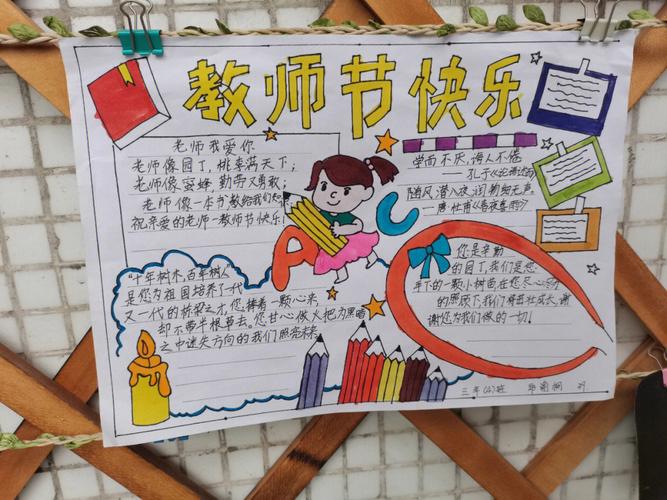 教师节快乐
老师我爱你
老师像园丁,桃李满天下;
老师像蜜蜂,勤劳又勇敢;
老师像一本书教给我们知
祝亲爱的老师—教师节快乐!
学而不厌,诲人不倦
——孔子《论语
随风潜入夜,润物细无声。
—唐 杜甫《春夜喜雨》
A
C
"十年树木,百年树人"
是您为祖国培养了一代
又一代的桥梁之才,您捧着一颗心来
却不带半根草去。您甘心做火把为黑暗
之中迷失方向的我们照亮
您是辛勤
的园丁,我们是您
手下的一颗小树苗在您尽心
的照顾下我们茁壮成长,谢
谢您为我们做的一切!
三年(4)班